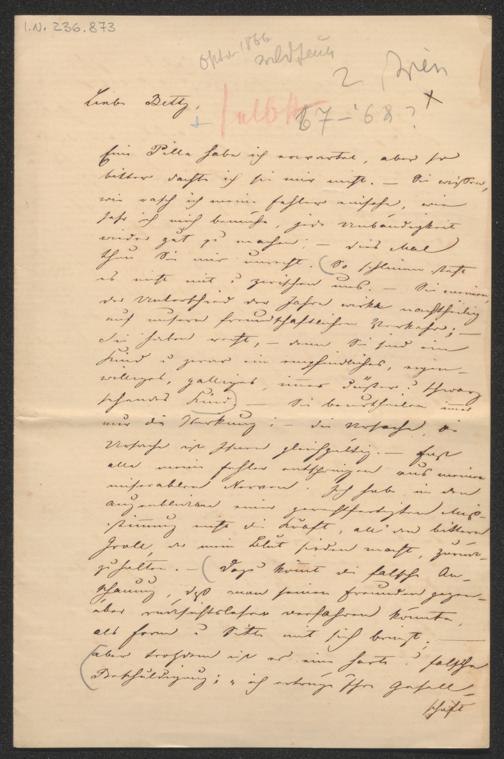 I.N. 236.873
2 Wien
67-'68?
Liebe Betty,
Eine Pille habe ich erwartet, aber so
bitter dachte ich sie mir nicht. — Sie wissen,
wie rasch ich meine Fehler einsehe, wie
sehr ich mich bemühe, jede Unbändigkeit
wieder gut zu machen; — dies Mal
thun Sie mir unrecht. (So schlimm steht
es nicht mit u zwischen uns. — Sie meinen
der Unterschied der Jahre wirke nachtheilig
auf unsern freundschaftlichen Verkehr; —
Sie haben recht, — denn Sie sind ein
Kind u zwar ein empfindliches, eigen-
williges, galliges, immer düster u schwarz
sehendes Kind) — Sie beurtheilen immer
nur die Wirkung; — die Ursache, die
Ursache ist Ihnen gleichgültig. — Fast
alle meine Fehler entspringen aus meinen
miserablen Nerven. Ich habe in den
Augenblicken einer gerechtfertigten Miß-
stimmung nicht die Kraft, all' den bittern
Groll, der mein Blut sieden macht, zurück-
zuhalten. — (Dazu kömmt die falsche An-
schauung, daß man seinen Freunden gegen-
über rücksichtsloser verfahren könnte,
als Form u Sitte mit sich bringt;
(aber trotzdem ist es eine harte u falsche
Beschuldigung; „ich ertrüge Ihre Gesell-
schaft